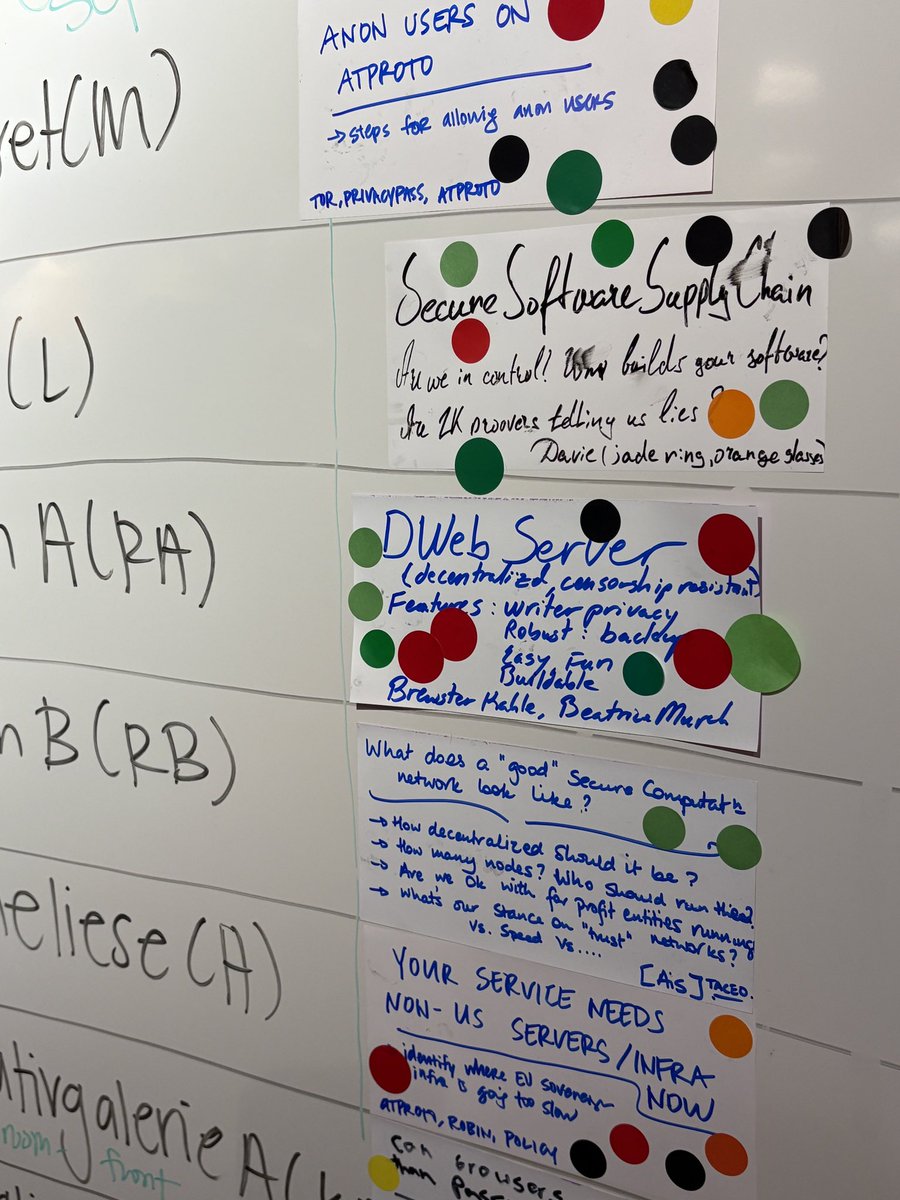 ret(M)
(L)
n A(RA)
n B(RB)
eliese(A)
ativgalerie A(
room
front
ANON USERS ON
ATPROTO
→ steps for allowig anon users
TOR, PRIVACYPASS, ATPROTO
Secure Software Supply Chain
Are we in control? Who builds your software?
Are ZK proovers telling us lies?
Davie (jade ring, orange glasses)
DWeb Server
(decentralized, censorship resistant)
Features: writer privacy
Robust: backup
Easy, Fun
Buildable
Brewster Kahle, Beatrice Murch
What does a "good" Secure Computatn
network look like?
→ How decentralized should it be?
→ How many nodes? Who should run them?
→ Are we Ok with for profit entities running
→ What's our stance on "trust" networks?
Vs. Speed Vs....
[Ais] TACEO.
YOUR SERVICE NEEDS
NON-US SERVERS/INFRA
NOW
identify where EU
infra is goig too slow
ATPROTO, ROBIN, POLICY
can browsers
than pass